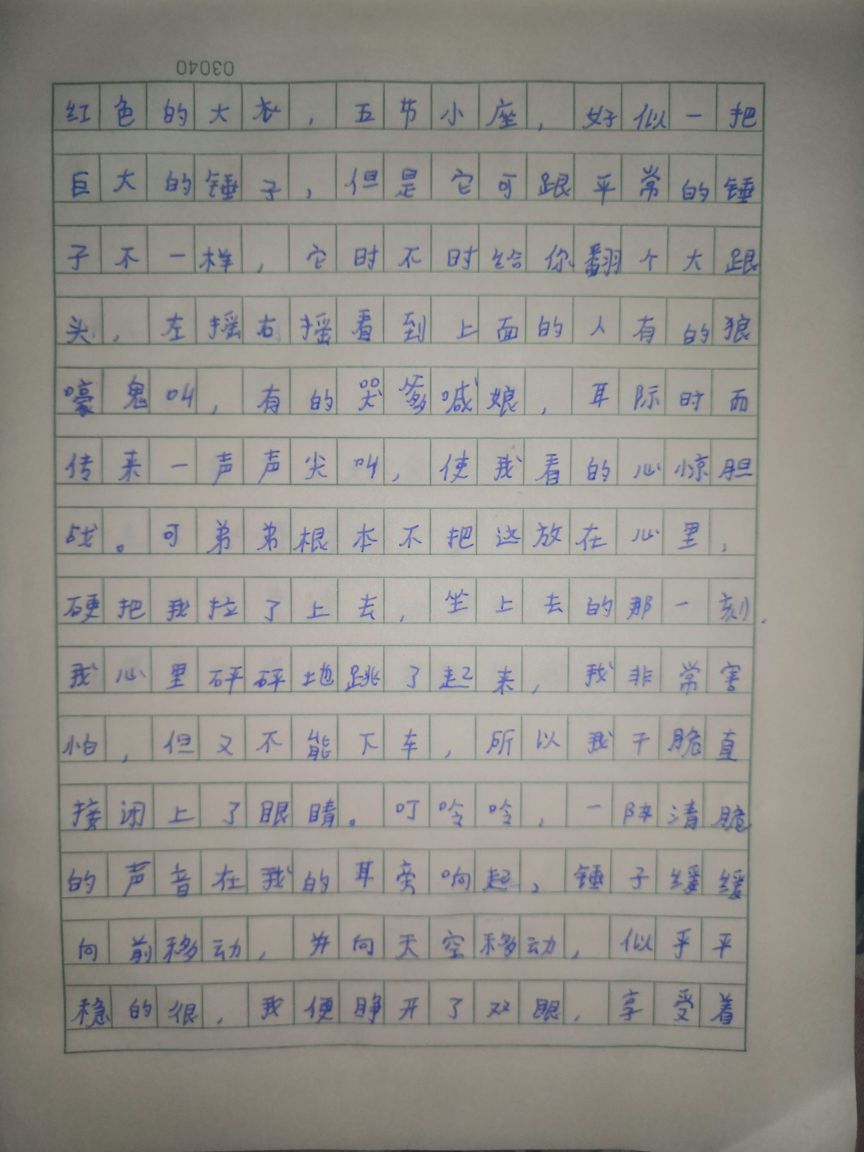 03040
红色的大衣，五节小座，好似一把
巨大的锤子，但是它可跟平常的锤
子不一样，它时不时给你翻个大跟
头，左摇右摇看到上面的人有的狼
嚎鬼叫，有的哭爹喊娘，耳际时而
传来一声声尖叫，使我看的心惊胆
战。可弟弟根本不把这放在心里，
硬把我拉了上去，坐上去的那一刻，
我心里砰砰地跳了起来，我非常害
怕，但又不能下车，所以我干脆直
接闭上了眼睛。叮呤呤，一阵清脆
的声音在我的耳旁响起，锤子缓缓
向前移动，并向天空移动，似乎平
稳的很，我便睁开了双眼，享受着